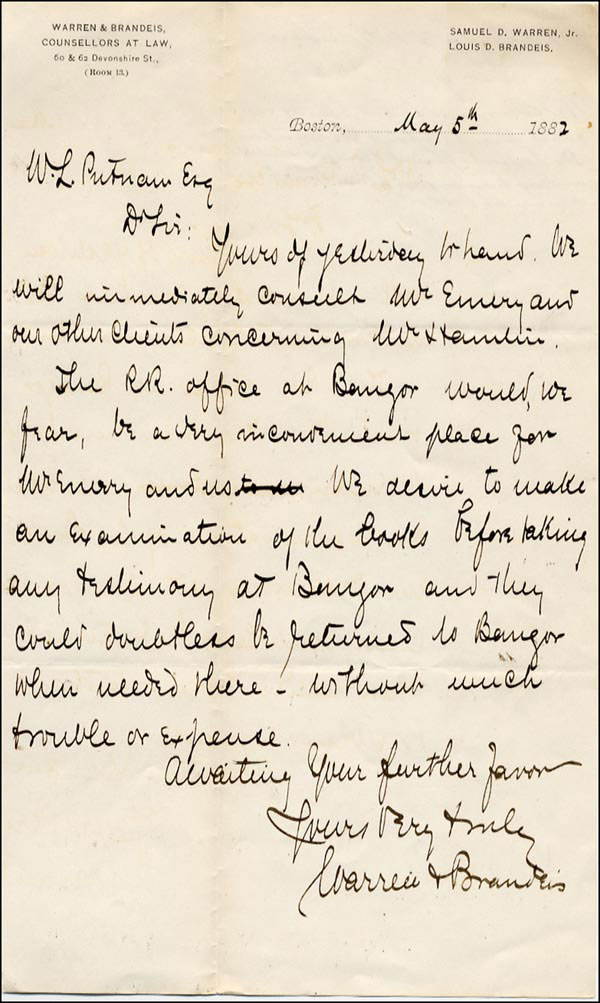 WARREN & BRANDEIS,
COUNSELLORS AT LAW,
60 & 62 Devonshire St.,
(ROOM 13.)
SAMUEL D. WARREN, Jr.
LOUIS D. BRANDEIS.
Boston, May 5th 1882
W. L. Putnam Esq
Dr Sir:
Yours of yesterday to hand. We
will immediately consult Mr Emery and
our other clients concerning Mr Hamlin.
The R.R. office at Bangor would, we
fear, be a very inconvenient place for
Mr Emery and us We desire to make
an examination of the books before taking
any testimony at Bangor and they
could doubtless be returned to Bangor
when needed there - without much
trouble or expense.
Awaiting your further favor
Yours very truly
Warren & Brandeis